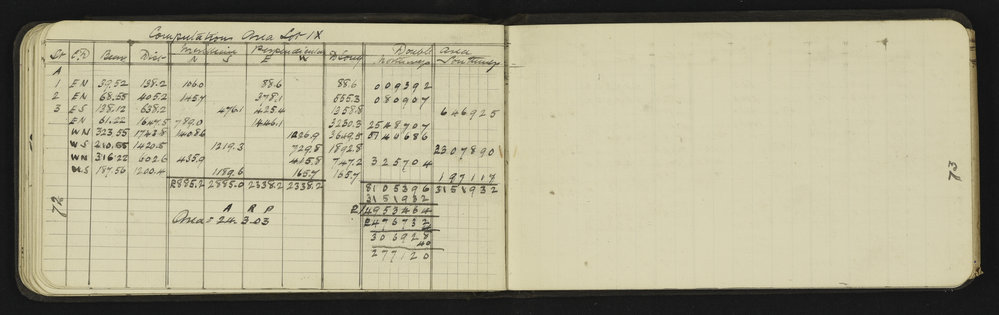 Computations Area Lot IX
Meridian Perpendicular Double Area
St Bear Dist N S E W D Long Northings Southings
A
1 EN 39.52 138.2 106.0 88.6 88.6 009392
2 EN 68.55 405.2 145.7 378.1 555.3 080907
3 ES 138.12 638.2 476.1 425.4 1358.8 646925
EN 61.22 1647.5 789.0 1446.1 3230.3 2548707
WN 323.55 1743.8 1408.6 1026.9 3649.5 5140686
WS 210.55 1420.5 1219.3 729.8 1892.8 2307890
WN 316.22 602.6 435.9 415.8 747.2 325704
WS 187.56 1200.4 1189.6 165.7 165.7 197117
2885.2 2885.0 2338.2 2338.2 8105396 3151932
3151932
A R P
2 4953464
Area = 24.3.03
2476732
4
306928
40
277120
72
73